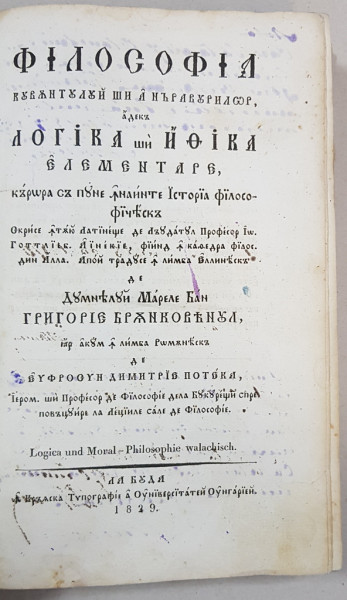 ФІЛОСОФІА
КꙋВѪНТꙋЛꙋЙ ШИ А НЪРАВꙋРИЛѠР,
АДЕКЪ
ЛОГІКА ШИ ИѲІКА
ЕЛЕМЕНТАРЕ,
кърѡра съ пꙋне ꙟнаинте Исторїа філосо-
фїчѣскъ
Скрисе ѫтѫю Латинѣще де Лъꙋдатꙋл Профісор Іѡ.
Готтліеб. Аїнекіе, фіинд ꙟ каѳедра філос.
дин Алла. Апой традꙋсе ꙟ лимба Еллинѣскъ
ДЕ
Дꙋмнѣлꙋй Мареле Бан
ГРИГОРІЕ БРѪНКОВѢНꙋЛ,
ꙗр акꙋм ꙟ лимба Рѡмѫнѣскъ
ДЕ
ЕꙋФРОСѴН ДИМИТРІЕ ПОТЕКА,
Іером. ши Професор де Філософіе дела Бꙋкꙋрещи спре
повъцꙋире ла Лекціиле сале де Філософіе.
Logica und Moral-Philosophie walachisch.
ЛА БꙋДА
ꙟ Кръꙗска Тѵпографіе а Оуниверсїтатей Оунгарїей.
1829.